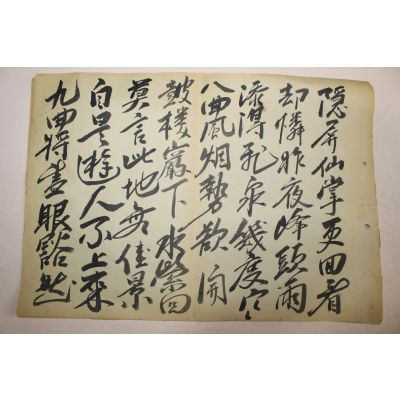 隱屏仙掌更回看
却憐昨夜峰頭雨
添得飛泉幾度寒
八曲風烟勢欲開
鼓樓巖下水縈回
莫言此地無佳景
自是遊人不上來
九曲將盡眼豁然